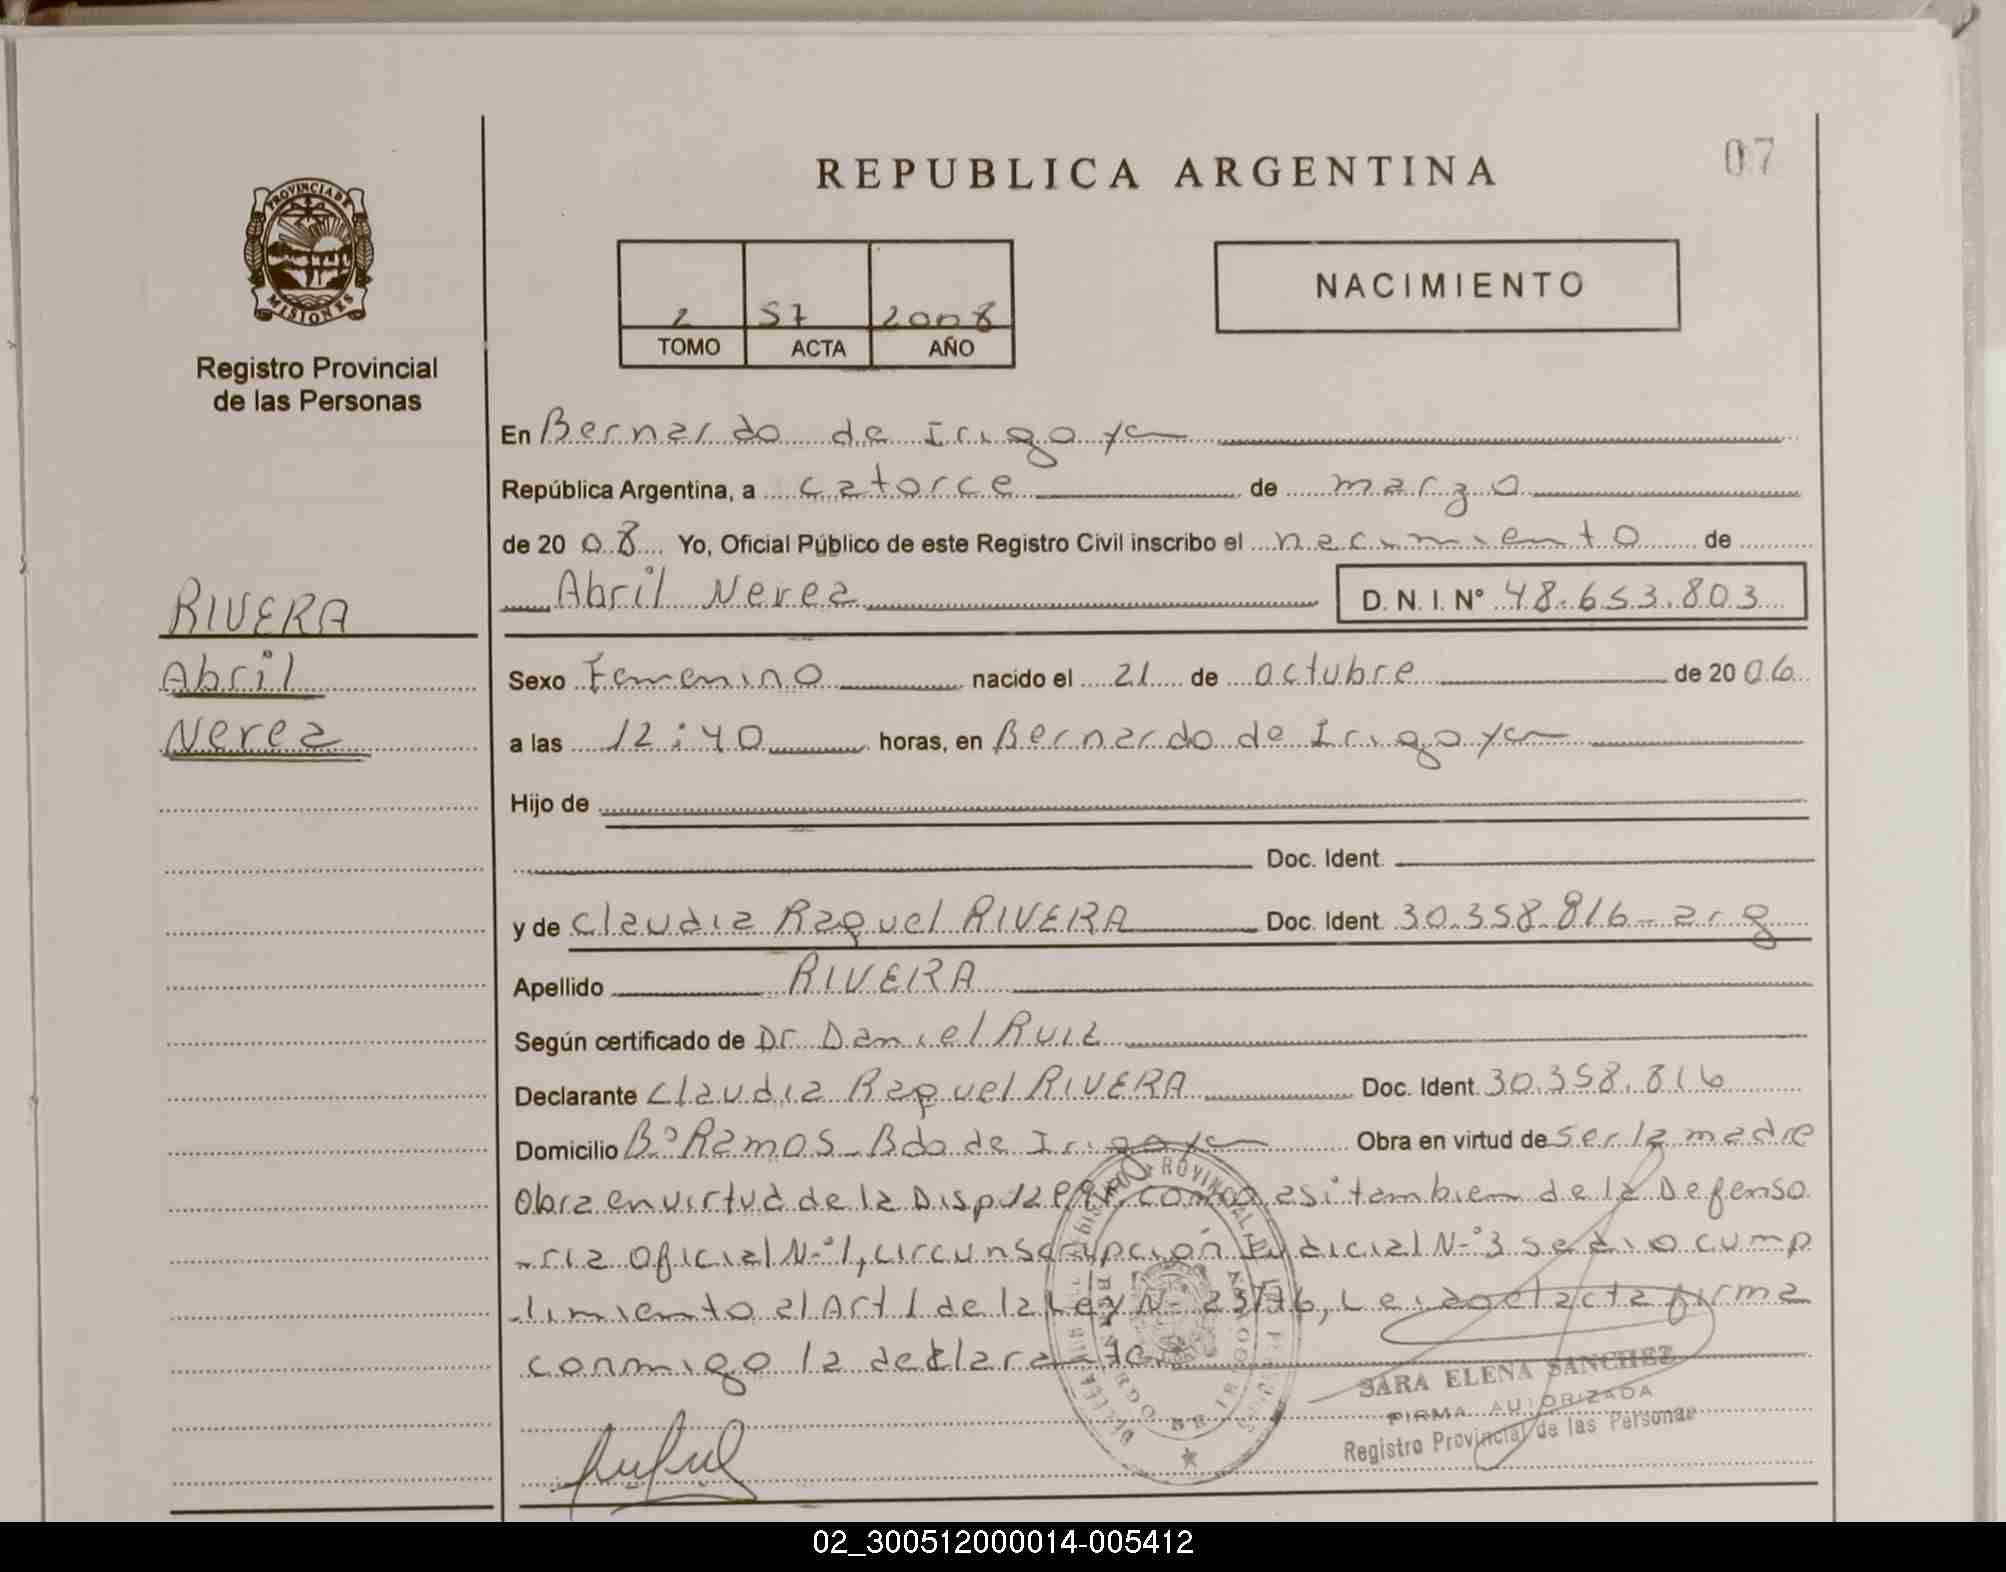 07
REPUBLICA ARGENTINA
PROVINCIA DE
MISIONES
Registro Provincial
de las Personas
NACIMIENTO
2 57 2008
TOMO ACTA AÑO
En Bernardo de Irigoyen
República Argentina, a catorce de marzo
de 20 08 Yo, Oficial Público de este Registro Civil inscribo el nacimiento de
Abril Nerea D. N. I. N° 48.653.803
RIVERA
Abril
Nerea
Sexo Femenino nacido el 21 de octubre de 20 06
a las 12:40 horas, en Bernardo de Irigoyen
Hijo de
Doc. Ident.
y de Claudia Raquel RIVERA Doc. Ident. 30.358.816 - arg
Apellido RIVERA
Según certificado de Dr Daniel Ruiz
Declarante Claudia Raquel RIVERA Doc. Ident. 30.358.816
Domicilio B° Ramos - Bdo de Irigoyen Obra en virtud de ser la madre
Obra en virtud de la Disp como asi tambien de la Defenso
-ria Oficial N°1, circunscripción Judicial N°3 se dio cump
-limiento al Art 1 de la Ley N° Leida el acta firma
conmigo la declarante.
SARA ELENA SANCHEZ
FIRMA AUTORIZADA
Registro Provincial de las Personas
02_300512000014-005412